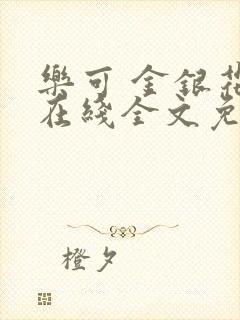 樂可 金銀花
在綫全文免
橙夕